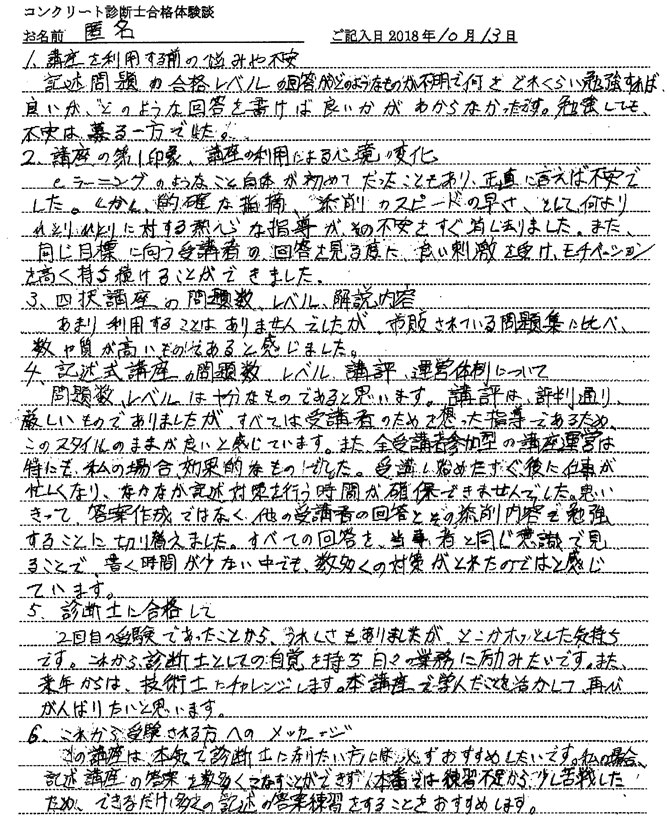 コンクリート診断士合格体験談
お名前 匿名 ご記入日 2018年10月13日
1. 講座を利用する前の悩みや不安
記述問題の合格レベルの回答がどのようなものか不明で何をどれくらい勉強すれば
良いか、どのような回答を書けば良いかがわからなかったです。勉強しても、
不安は募る一方でした。
2. 講座の第1印象、講座の利用による心境の変化
eラーニングのようなこと自体が初めてだったこともあり、正直に言えば不安で
した。しかし、的確な指摘、添削のスピードの早さ、そして何より
ひとりひとりに対する熱心な指導が、その不安をすぐ消し去りました。また、
同じ目標に向う受講者の回答を見る度に、良い刺激を受け、モチベーション
を高く持ち続けることができました。
3. 四択講座の問題数、レベル、解説内容
あまり利用することはありませんでしたが、市販されている問題集に比べ、
数や質が高いものであると感じました。
4. 記述式講座の問題数、レベル、講評、運営体制について
問題数、レベルは十分なものであると思います。講評は、評判通り、
厳しいものでありましたが、すべては受講者のためを想った指導であるため、
このスタイルのままが良いと感じています。また、全受講者参加型の講座運営は
特にも、私の場合、効果的なものでした。受講し始めたすぐ後に仕事が
忙しくなり、なかなか記述対策を行う時間が確保できませんでした。思い
きって、答案作成ではなく、他の受講者の回答とその添削内容で勉強
することに切り替えました。すべての回答を、当事者と同じ意識で見
ることで、書く時間が少ない中でも、数多くの対策がとれたのではと感じ
ています。
5. 診断士に合格して
2回目の受験であったことから、うれしさもありましたが、どこかホッとした気持ち
です。これから、診断士としての自覚を持ち日々の業務に励みたいです。また、
来年からは、技術士にチャレンジします。本講座で学んだことを活かして、再び
がんばりたいと思います。
6. これから受験される方へのメッセージ
この講座は、本気で診断士になりたい方には、必ずおすすめしたいです。私の場合、
記述講座の答案を数多くこなすことができず、本番では練習不足から、少し苦戦した
ため、できるだけ多くの記述の答案練習をすることをおすすめします。